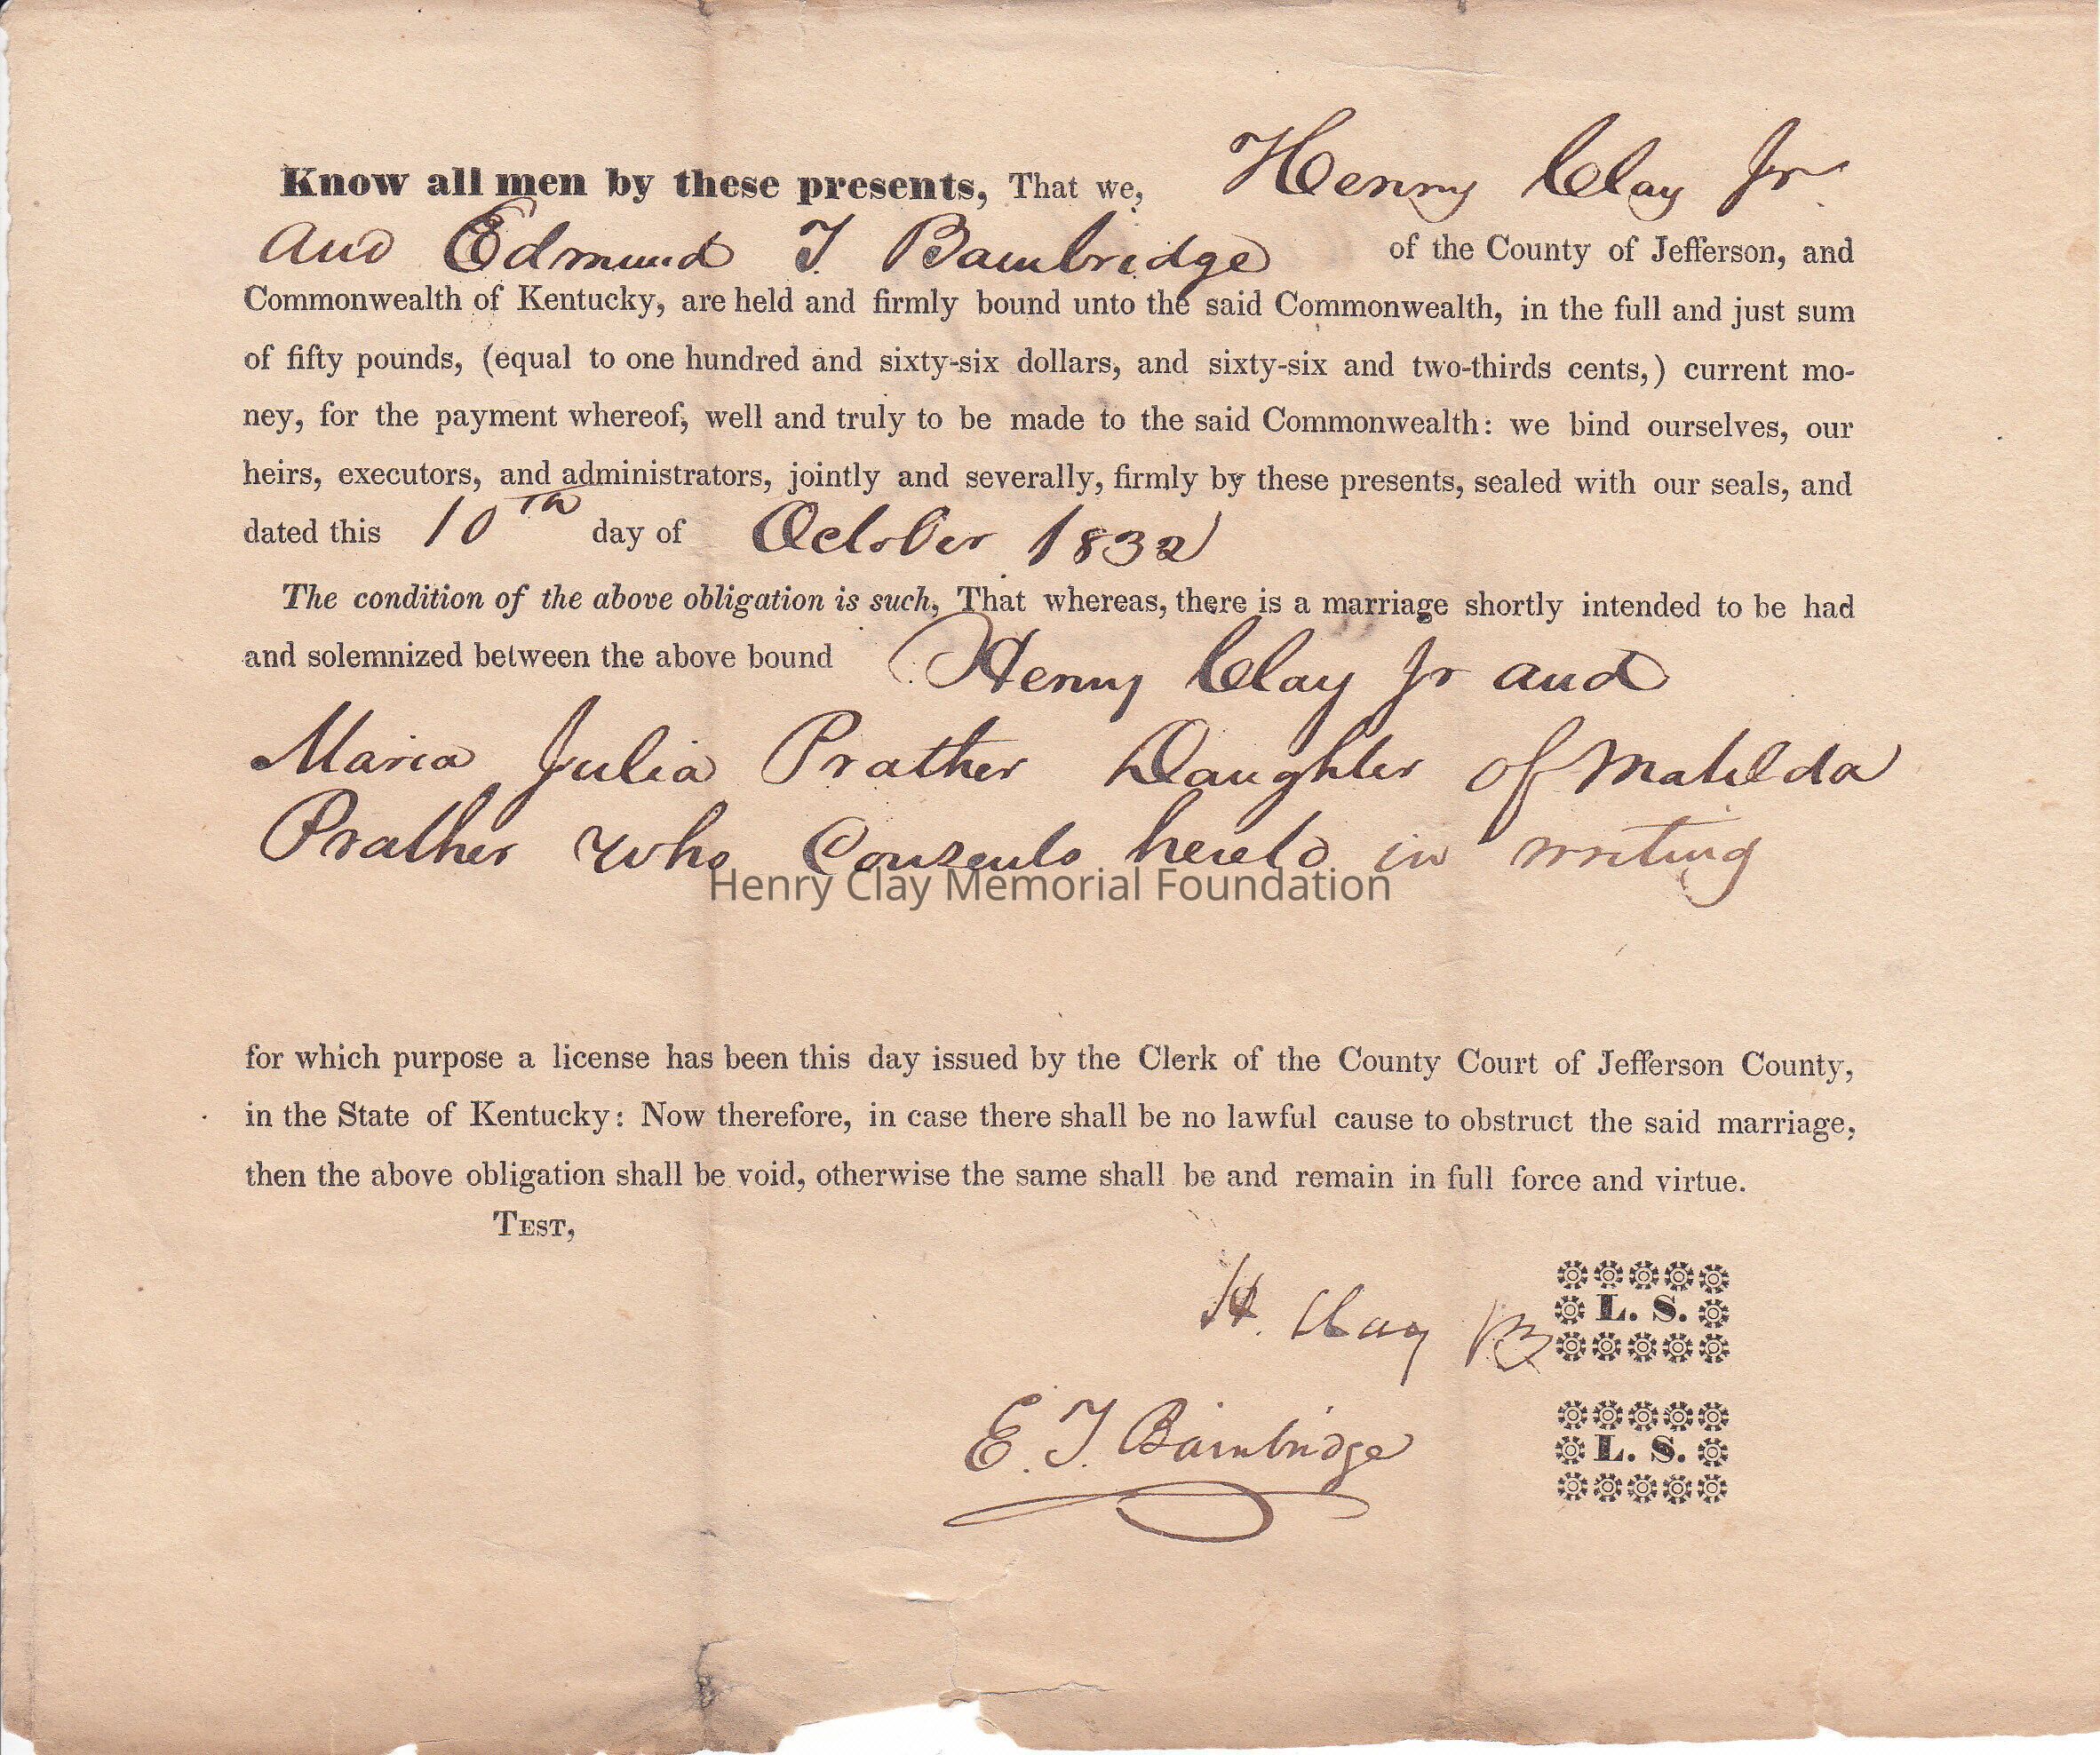 Know all men by these presents, That we, Henry Clay Jr
and Edmund T Bainbridge of the County of Jefferson, and
Commonwealth of Kentucky, are held and firmly bound unto the said Commonwealth, in the full and just sum
of fifty pounds, (equal to one hundred and sixty-six dollars, and sixty-six and two-thirds cents,) current mo-
ney, for the payment whereof, well and truly to be made to the said Commonwealth: we bind ourselves, our
heirs, executors, and administrators, jointly and severally, firmly by these presents, sealed with our seals, and
dated this 10th day of October 1832
The condition of the above obligation is such, That whereas, there is a marriage shortly intended to be had
and solemnized between the above bound Henry Clay Jr and
Maria Julia Prather Daughter of Matilda
Prather who Consents hereto in writing
Henry Clay Memorial Foundation
for which purpose a license has been this day issued by the Clerk of the County Court of Jefferson County,
in the State of Kentucky: Now therefore, in case there shall be no lawful cause to obstruct the said marriage,
then the above obligation shall be void, otherwise the same shall be and remain in full force and virtue.
TEST,
H. Clay L. S.
E. T. Bainbridge L. S.